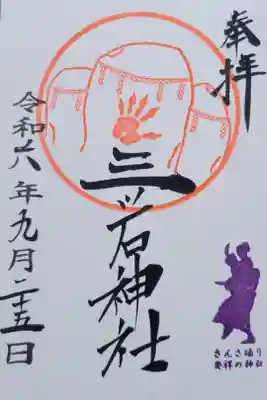 奉拝
三ツ石神社
令和六年九月二十五日
さんさ踊り
発祥の神社